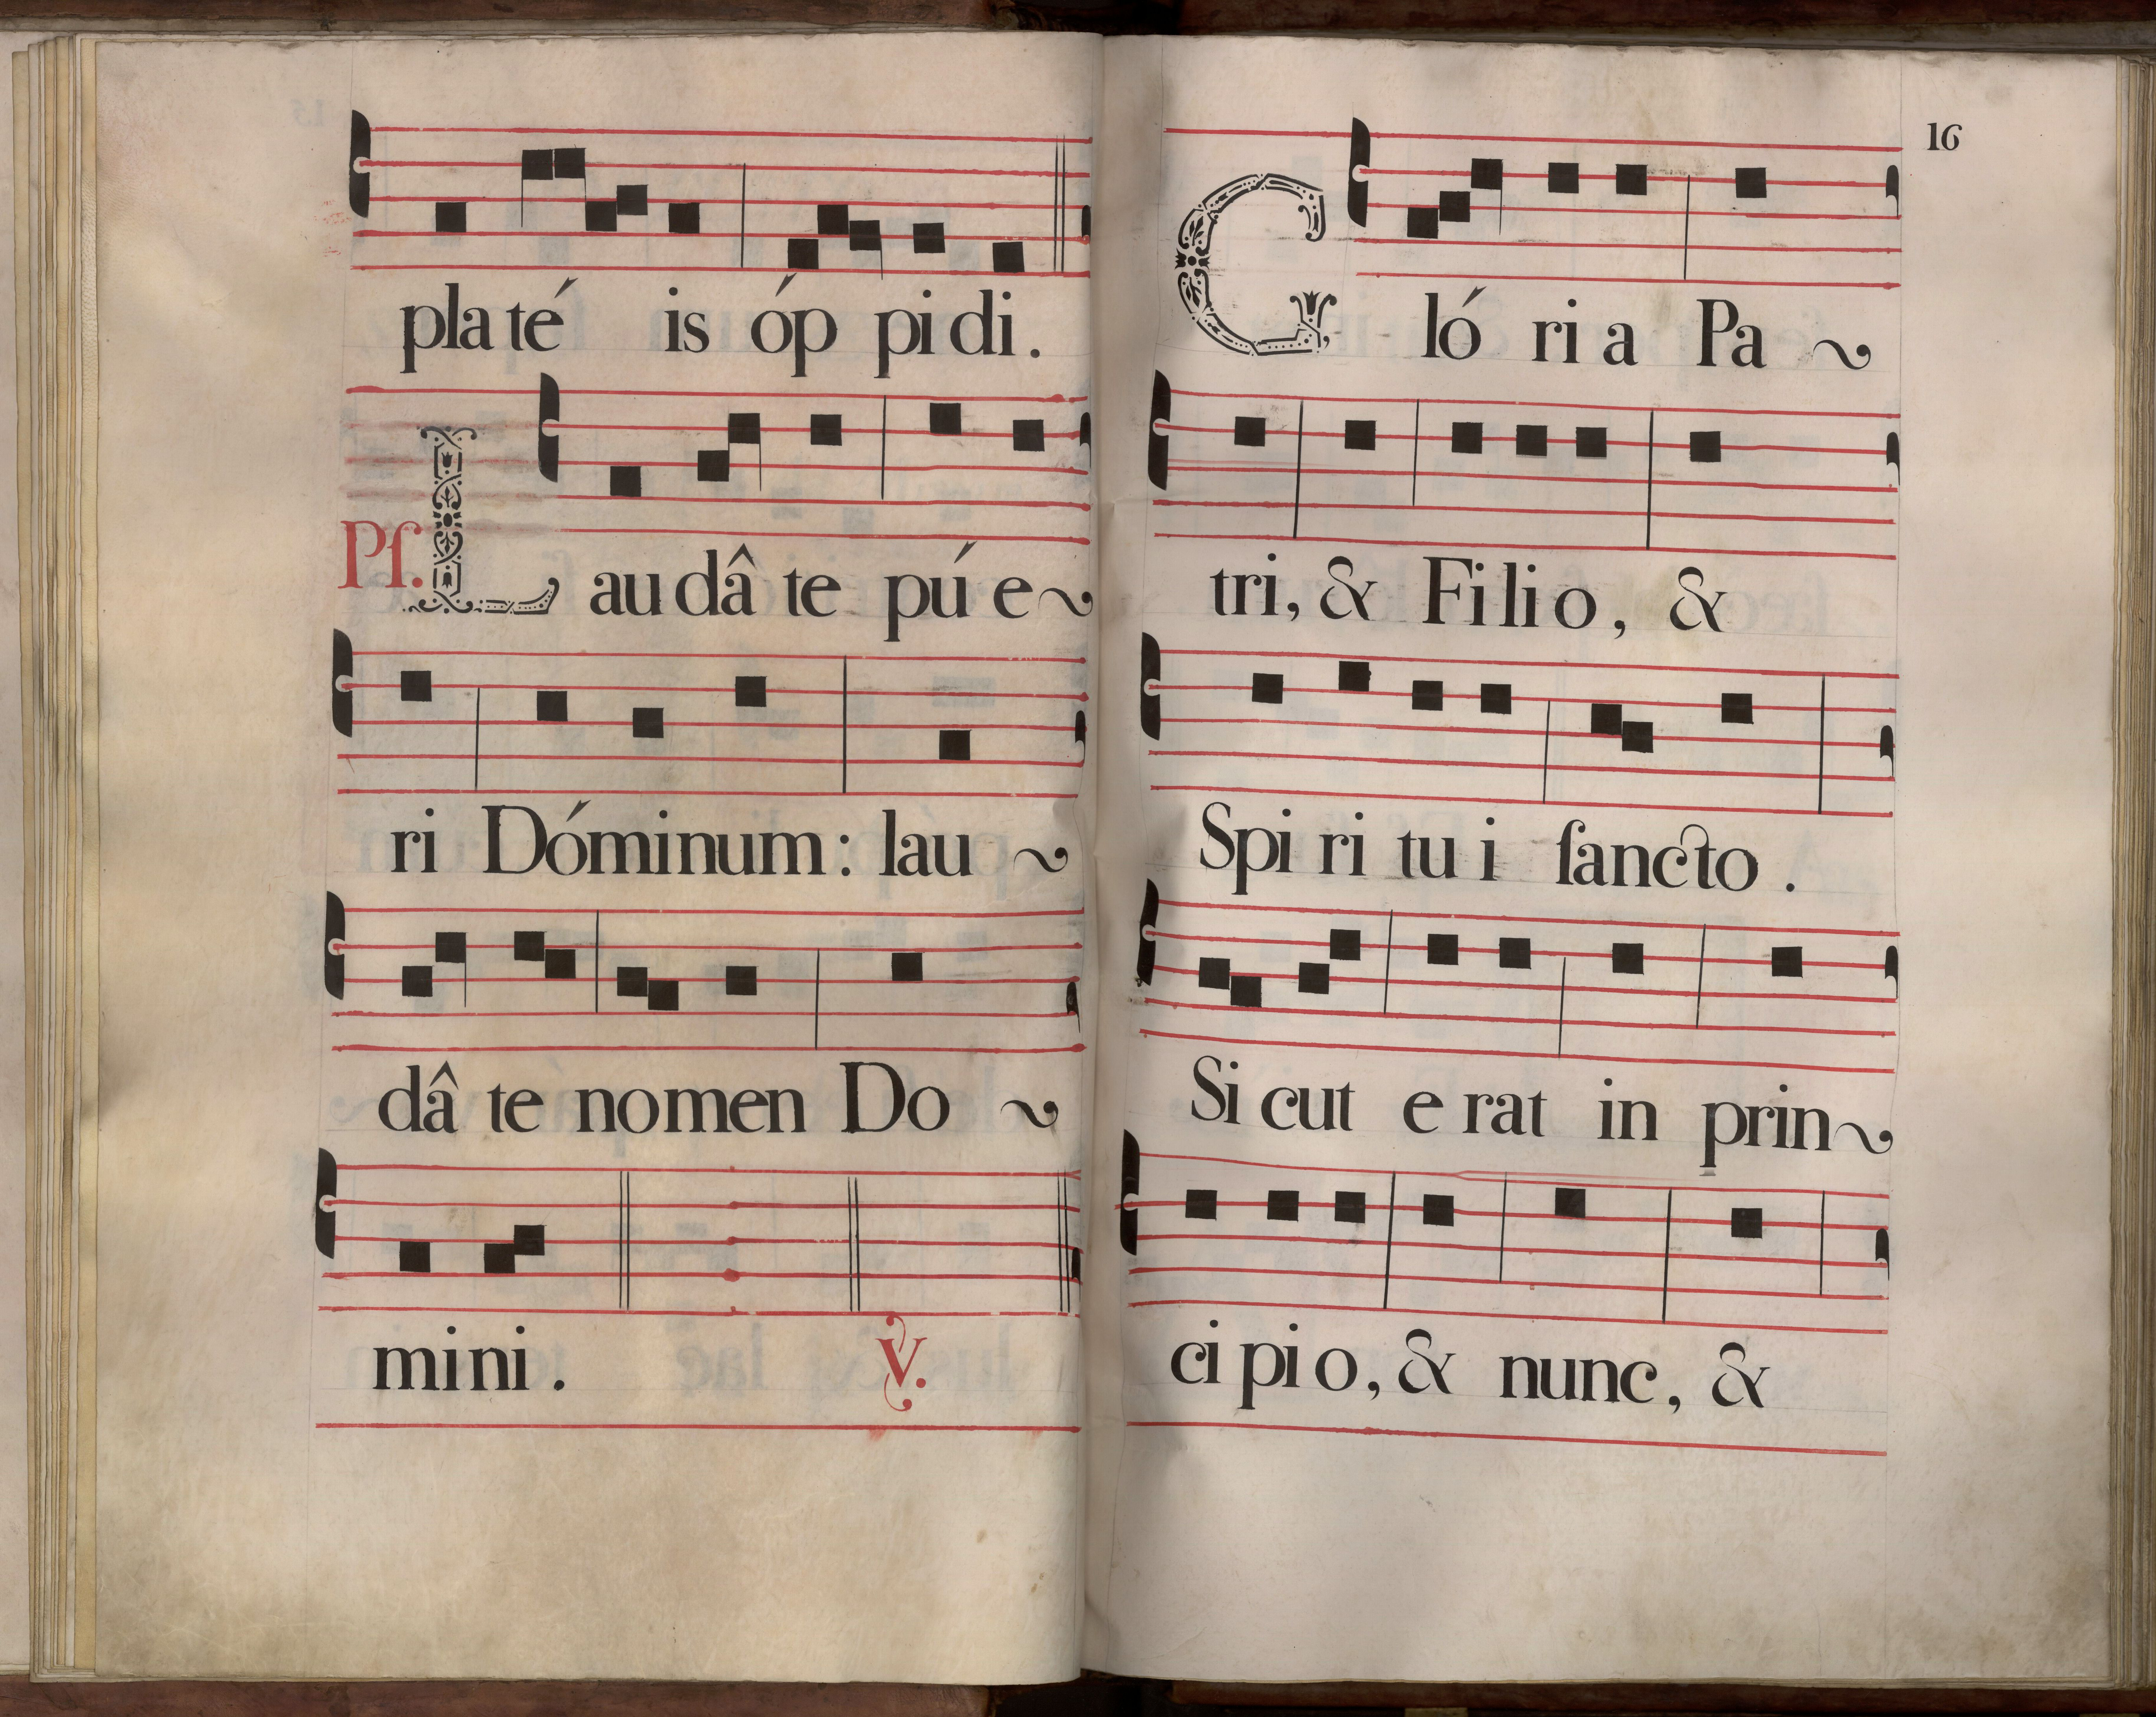 pla té is óp pi di.
Pſ. L au dâ te pú e~
ri Dóminum: lau ~
dâ te nomen Do ~
mini. V.
16
G ló ri a Pa ~
tri, & Fi li o, &
Spi ri tu i ſancto.
Si cut e rat in prin~
ci pi o, & nunc, &